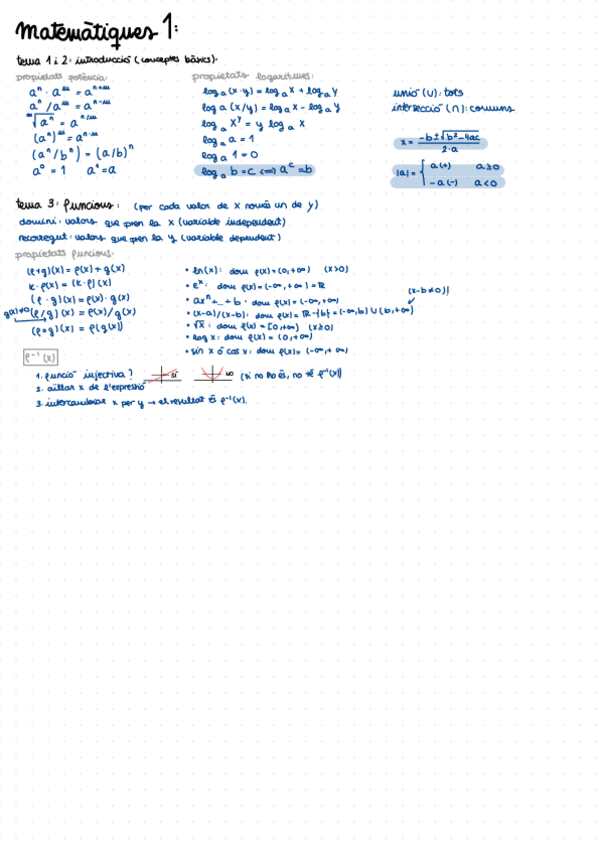 matemàtiques 1:
tema 1 i 2: introducció (conceptes bàsics).
propietats potència:
aⁿ · aᵐ = aⁿ⁺ᵐ
aⁿ / aᵐ = aⁿ⁻ᵐ
ᵐ√aⁿ = a^(n/m)
(aⁿ)ᵐ = aⁿ·ᵐ
(aⁿ/bⁿ) = (a/b)ⁿ
a⁰ = 1 a¹ = a
propietats logaritmes:
log a (x·y) = log a x + log a y
log a (x/y) = log a x - log a y
log a xʸ = y log a x
log a a = 1
log a 1 = 0
log a b = c <=> aᶜ = b
unió (∪): tots
intersecció (∩): comuns
x = (-b ± √(b²-4ac)) / (2·a)
|a| = { a (+) a≥0
-a (-) a<0
tema 3: funcions: (per cada valor de x només un de y)
domini: valors que pren la x (variable independent)
recorregut: valors que pren la y (variable dependent)
propietats funcions:
(f+g)(x) = f(x) + g(x)
k·f(x) = (k·f)(x)
(f·g)(x) = f(x)·g(x)
g(x)≠0 (f/g)(x) = f(x)/g(x)
(f∘g)(x) = f(g(x))
• ln(x): dom f(x) = (0,+∞) (x>0)
• eˣ: dom f(x) = (-∞,+∞) = ℝ
• axⁿ+...+b: dom f(x) = (-∞,+∞)
(x-b≠0)!
• (x-a)/(x-b): dom f(x) = ℝ-{b} = (-∞,b) ∪ (b,+∞)
• √x: dom f(x) = [0,+∞) (x≥0)
• log x: dom f(x) = (0,+∞)
• sin x ó cos x: dom f(x) = (-∞,+∞)
f⁻¹(x)
1. funció injectiva? sí no (si no ho és, no té f⁻¹(x))
2. aïllar x de l'expressió
3. intercanviar x per y → el resultat és f⁻¹(x).